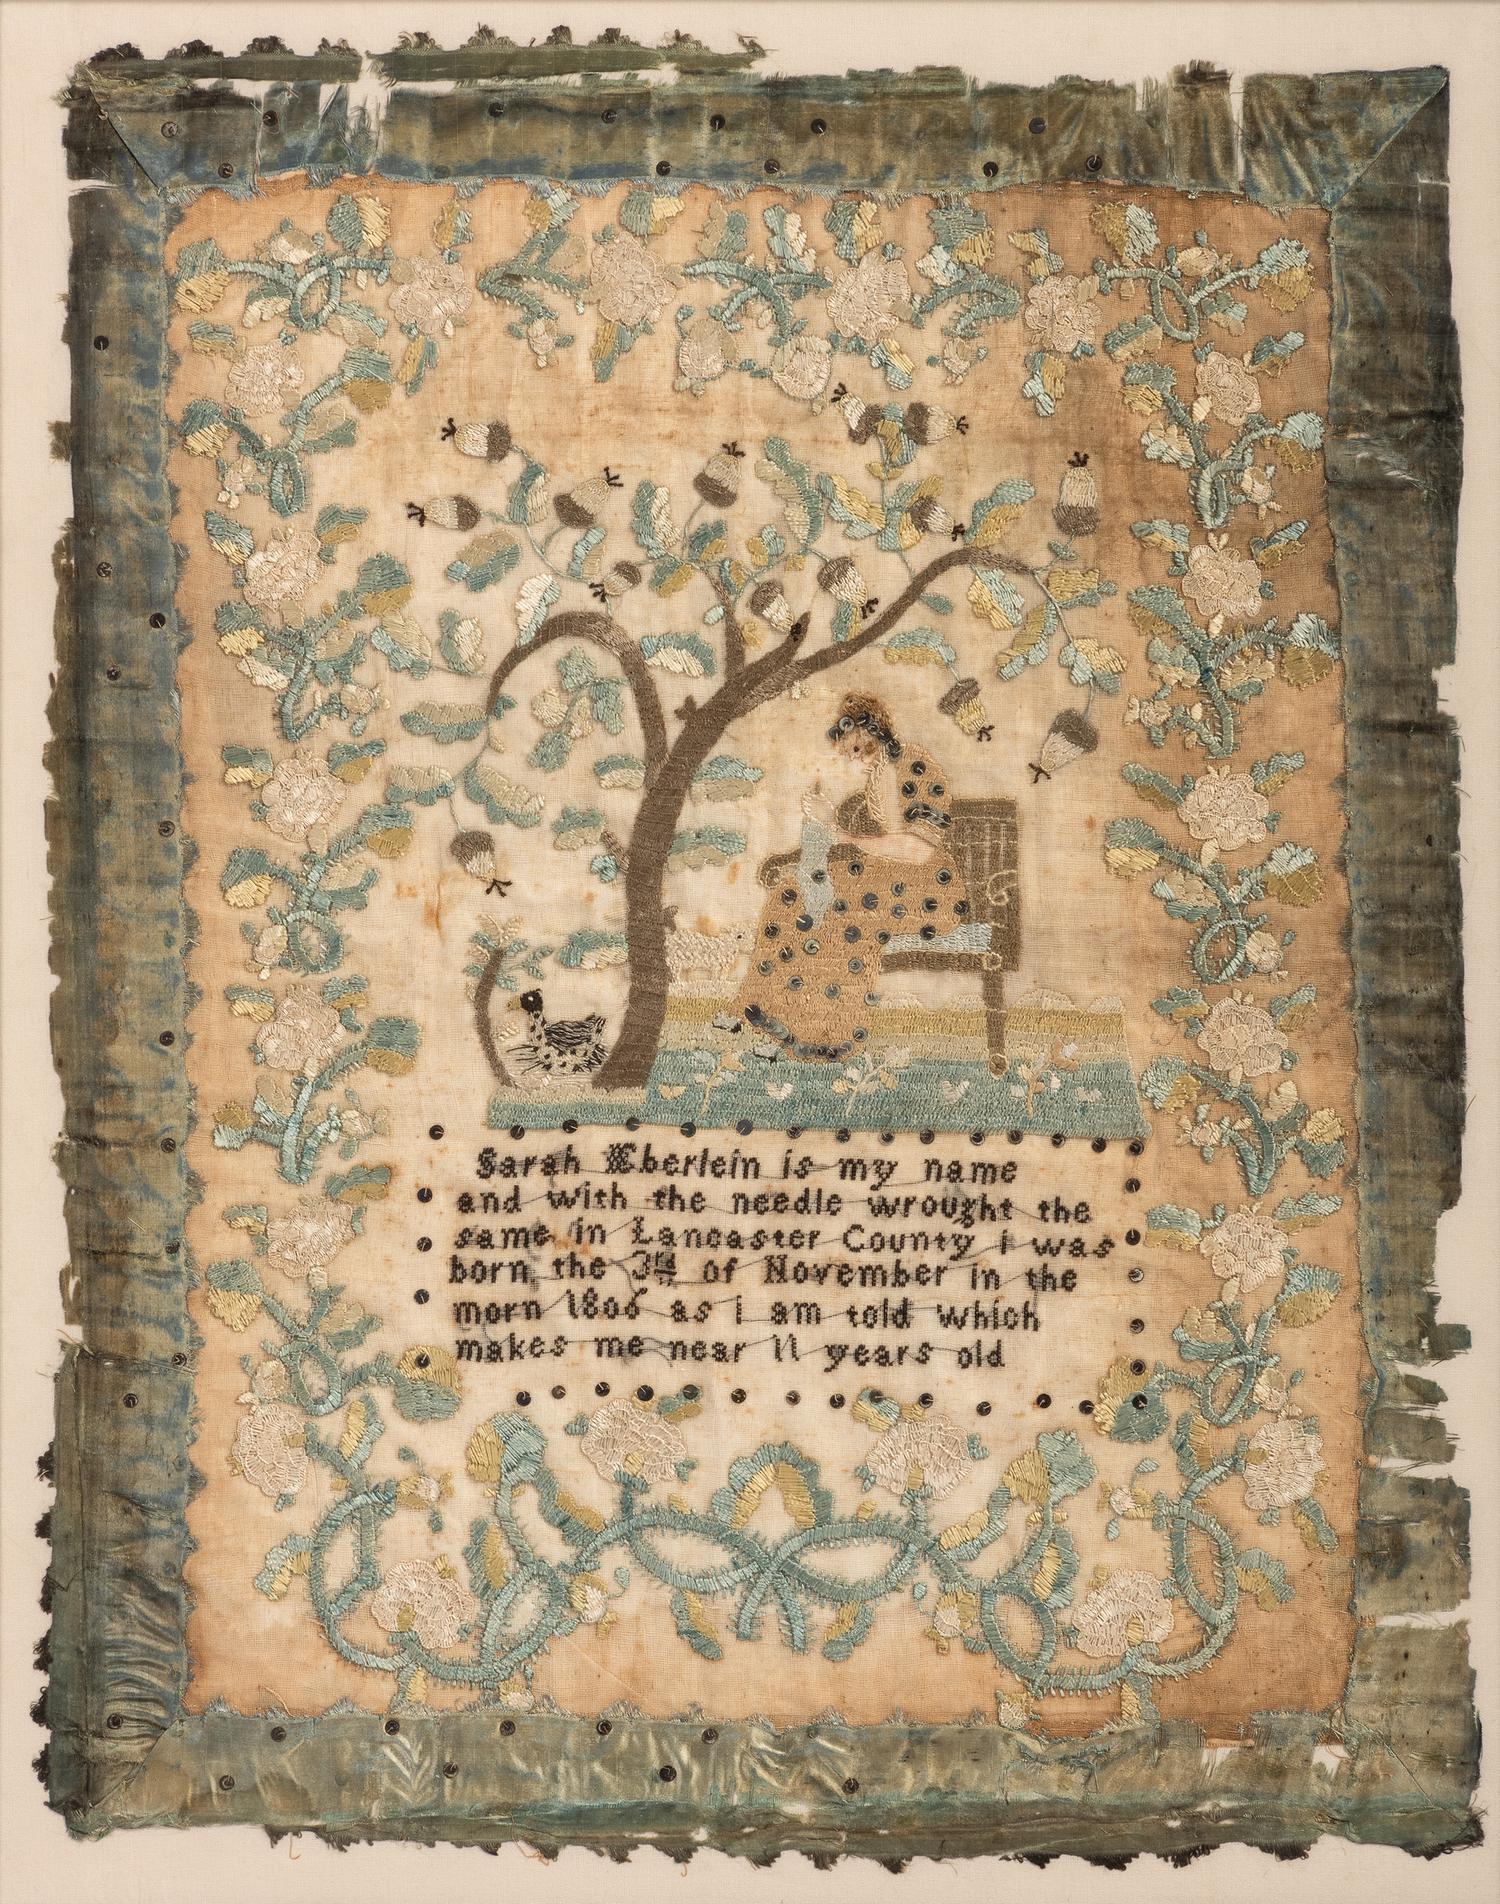 Sarah Eberlein is my name
and with the needle wrought the
same in Lancaster County i was
born the 3rd of November in the
morn 1806 as i am told which
makes me near 11 years old